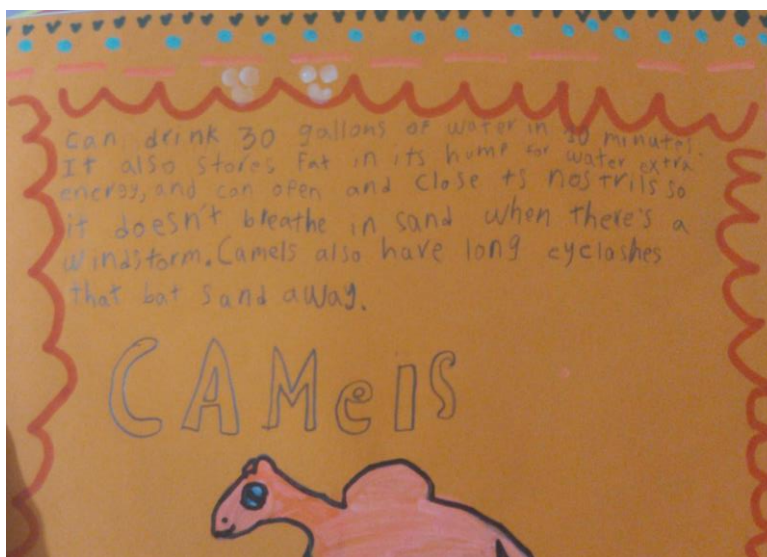 can drink 30 gallons of water in 10 minutes.
It also stores fat in its hump for water extra
energy, and can open and close ts nostrils so
it doesn't breathe in sand when there's a
windstorm. Camels also have long eyelashes
that bat sand away.
CAMelS